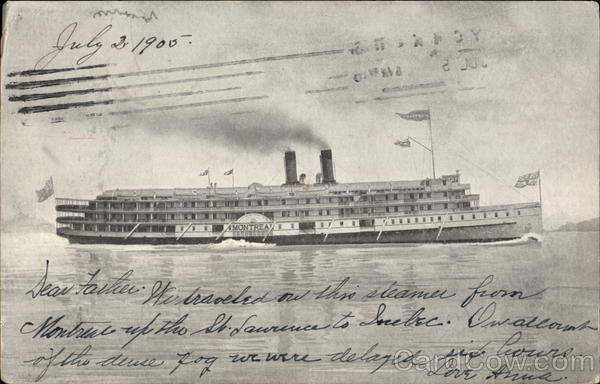 July 2 1905.
MONTREAL
Dear Father. We traveled on this steamer from
Montreal up the St. Lawrence to Quebec. On account
of the dense fog we were delayed six hours
Love Anna.
CardCow.com